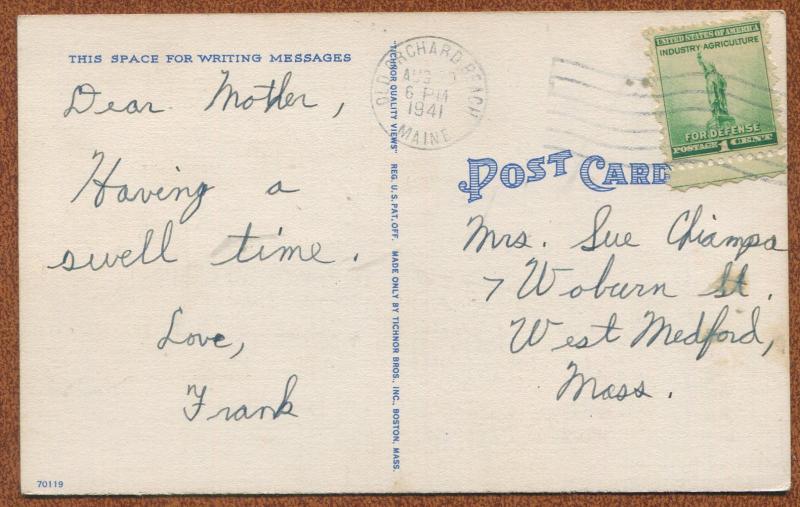 THIS SPACE FOR WRITING MESSAGES
Dear Mother,
Having a
swell time.
Love,
Frank
70119
"TICHNOR QUALITY VIEWS" REG. U.S. PAT. OFF. MADE ONLY BY TICHNOR BROS., INC., BOSTON, MASS.
OLD ORCHARD BEACH
AUG
6 PM
1941
MAINE
UNITED STATES OF AMERICA
INDUSTRY·AGRICULTURE
FOR DEFENSE
POSTAGE 1 CENT
POST CARD
Mrs. Sue Chiampa
7 Woburn St.
West Medford,
Mass.